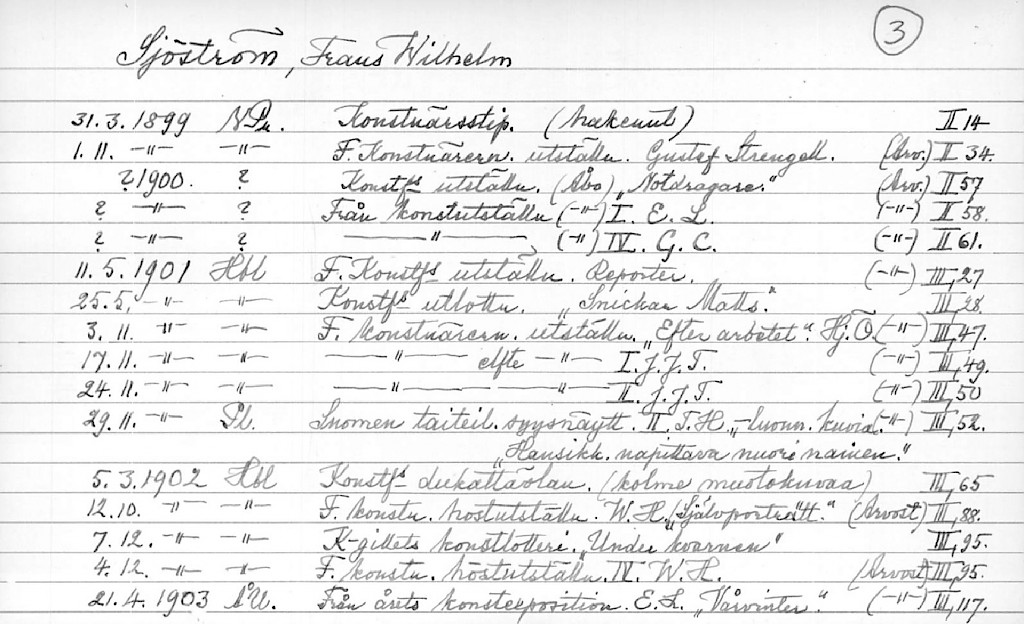 3
Sjöström, Frans Wilhelm
31.3.1899 N.Pr. Konstnärsstip. (hakenut) II 14
1.11. -"- -"- F. Konstnärern. utställn. Gustef Strengell. (Arv.) II 34.
? 1900. ? Konstfs utställn. (Åbo) „Notdragare." (Arv.) II 57
? -"- ? Från konstutställn (-"-) I. E. L. (-"-) II 58.
? -"- ? -"- , (-"-) IV. G. C. (-"-) II 61.
11.5.1901 Hbl F. Konstfs utställn. Reporter. (-"-) III, 27
25.5. -"- -"- Konstfs utlottn. „Snickar Matts." III, 28.
3.11. -"- -"- F. konstnärern. utställn. „Efter arbetet". Hj. Ö. (-"-) III, 47.
17.11. -"- -"- -"- elfte -"- I. J.J.T. (-"-) III, 49.
24.11. -"- -"- -"- -"- II. J.J.T. (-"-) III, 50
29.11. -"- Pl. Suomen taiteil. syysnäytt. II. T.H. „-luonn. kuvia. (-"-) III, 52.
„Hansikk. napittava nuori nainen."
5.3.1902 Hbl Konstfs dukattävlan. (kolme muotokuvaa) III, 65
12.10. -"- -"- F. konstn. höstutställn. W.H. „Självporträtt." (Arvost) III, 88.
7.12. -"- -"- K-gillets konstlotteri. „Under kvarnen" III, 95.
4.12. -"- -"- F. konstn. höstutställn. IV. W.H. (Arvost) III, 95.
21.4.1903 Å.U. Från årets konstexposition. E.L. „Vårvinter". (-"-) III, 117.